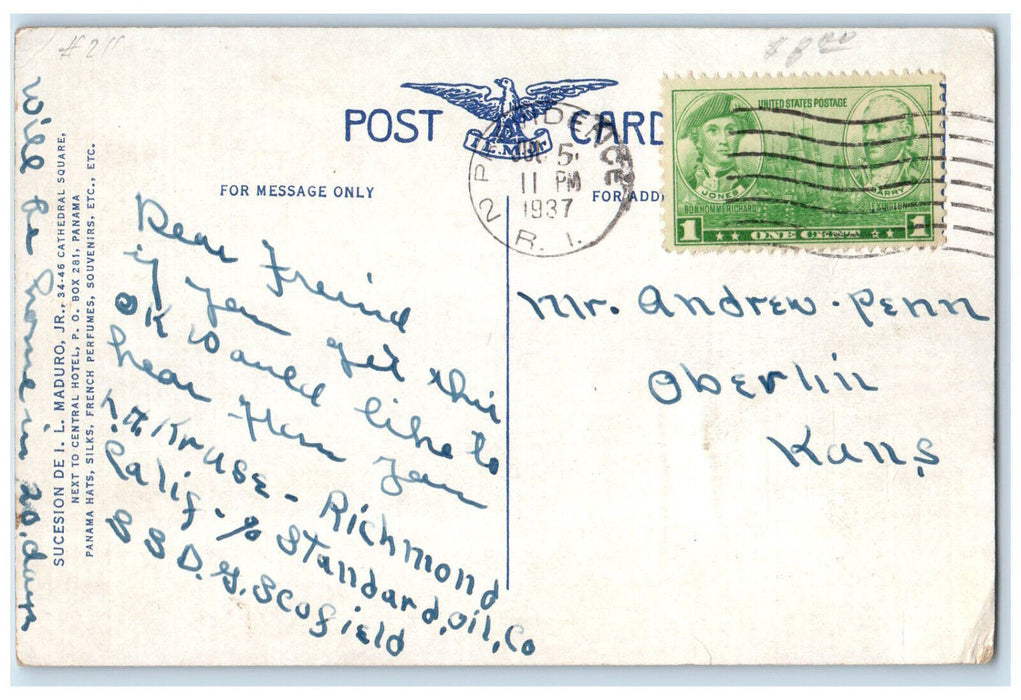 # 211
$8.00
POST CARD
I.L.M.Jr.
FOR MESSAGE ONLY
FOR ADD
PROVIDENCE
5
11 PM
1937
2 R. I.
UNITED STATES POSTAGE
JONES
BARRY
BONHOMME RICHARD
LEXINGTON
1 ONE CENT 1
Dear Freind
if you get this
OK Would like to
hear from you
Kruse - Richmond
Calif - % Standard, Oil, Co
S S D. G. Scofield
Will be home in 20. days
SUCESION DE I. L. MADURO, JR., 34-46 CATHEDRAL SQUARE,
NEXT TO CENTRAL HOTEL, P. O. BOX 281, PANAMA
PANAMA HATS, SILKS, FRENCH PERFUMES, SOUVENIRS, ETC., ETC.
Mr. Andrew. Penn
Oberlin
Kans